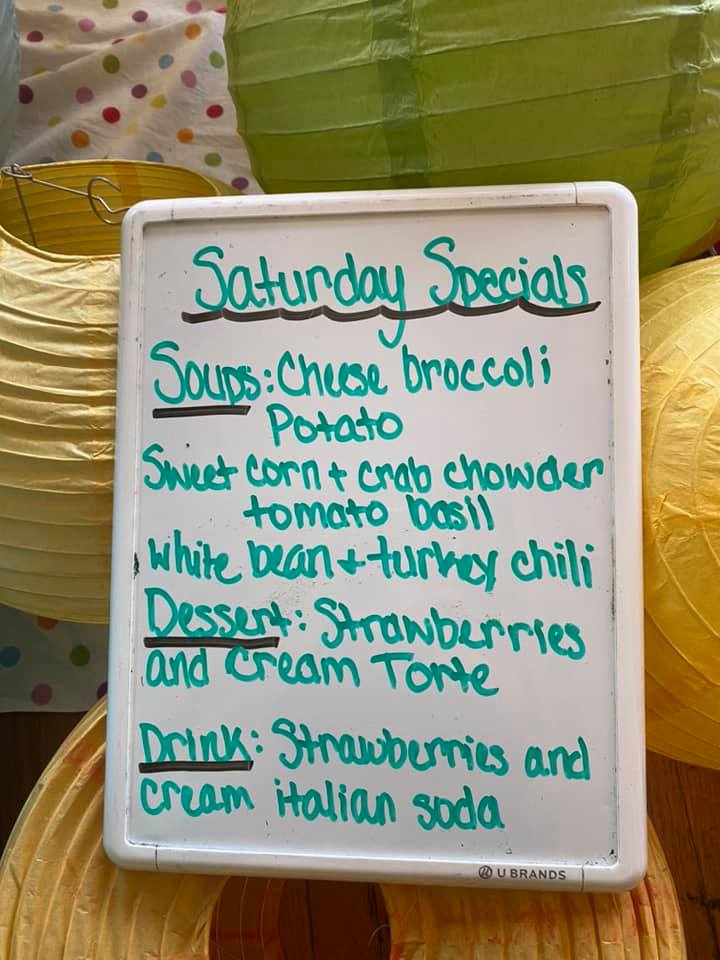 Saturday Specials
Soups: Cheese broccoli
Potato
Sweet corn + crab chowder
tomato basil
white bean + turkey chili
Dessert: Strawberries
and Cream Torte
Drink: Strawberries and
cream italian soda
U BRANDS